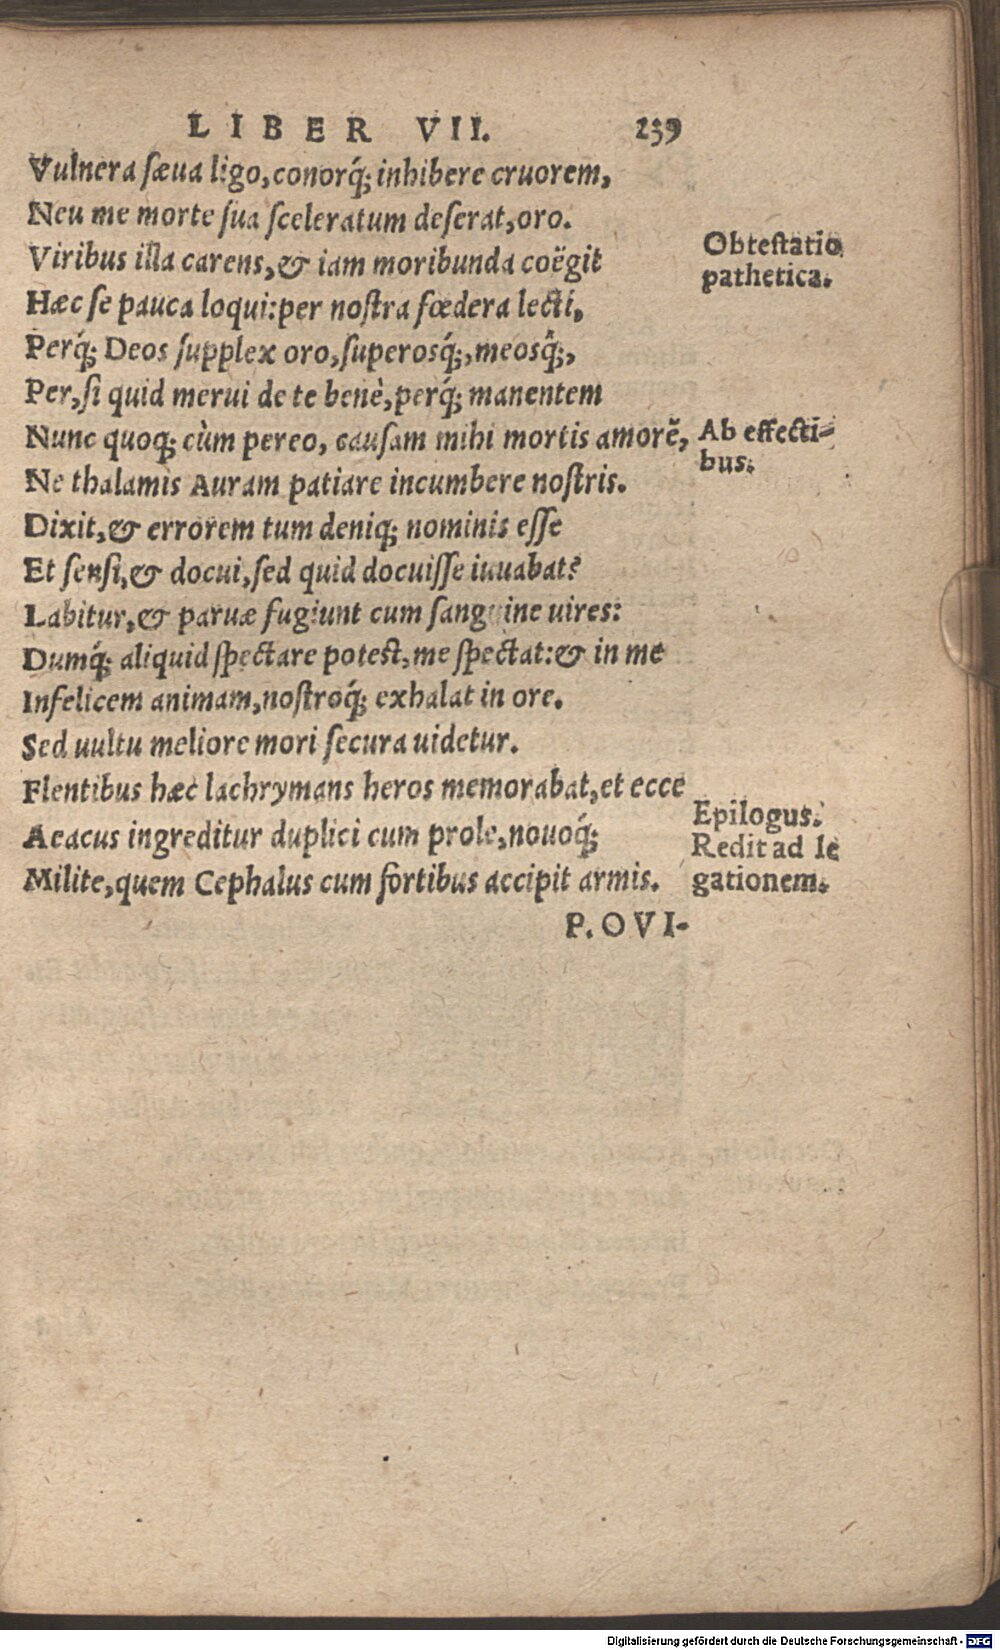 LIBER VII. 239
Vulnera sæua ligo, conorq́; inhibere cruorem,
Neu me morte sua sceleratum deserat, oro.
Viribus illa carens, & iam moribunda coëgit
Obtestatio
pathetica.
Hæc se pauca loqui: per nostra fœdera lecti,
Perq́; Deos supplex oro, superosq́;, meosq́;,
Per, si quid merui de te benè, perq́; manentem
Nunc quoq; cùm pereo, causam mihi mortis amorẽ,
Ab effecti-
bus.
Ne thalamis Auram patiare incumbere nostris.
Dixit, & errorem tum deniq; nominis esse
Et sensi, & docui, sed quid docuisse iuuabat?
Labitur, & paruæ fugiunt cum sanguine uires:
Dumq́; aliquid spectare potest, me spectat: & in me
Infelicem animam, nostroq́; exhalat in ore.
Sed uultu meliore mori secura uidetur.
Flentibus hæc lachrymans heros memorabat, et ecce
Aeacus ingreditur duplici cum prole, nouoq́;
Milite, quem Cephalus cum fortibus accipit armis.
Epilogus.
Redit ad le
gationem.
P. OVI-
Digitalisierung gefördert durch die Deutsche Forschungsgemeinschaft - DFG